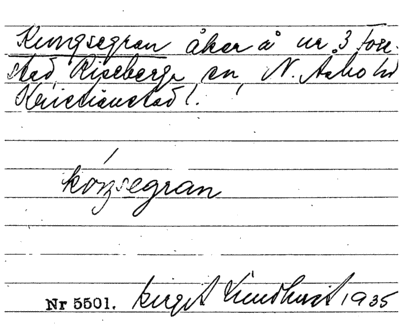 Kungsegran åker å nr 3 Tore-
stad, Riseberga sn, N. Åsbo hd
Kristianstad l.
kóŋsegran
Nr 5501. Birgit Lundqvist 1935